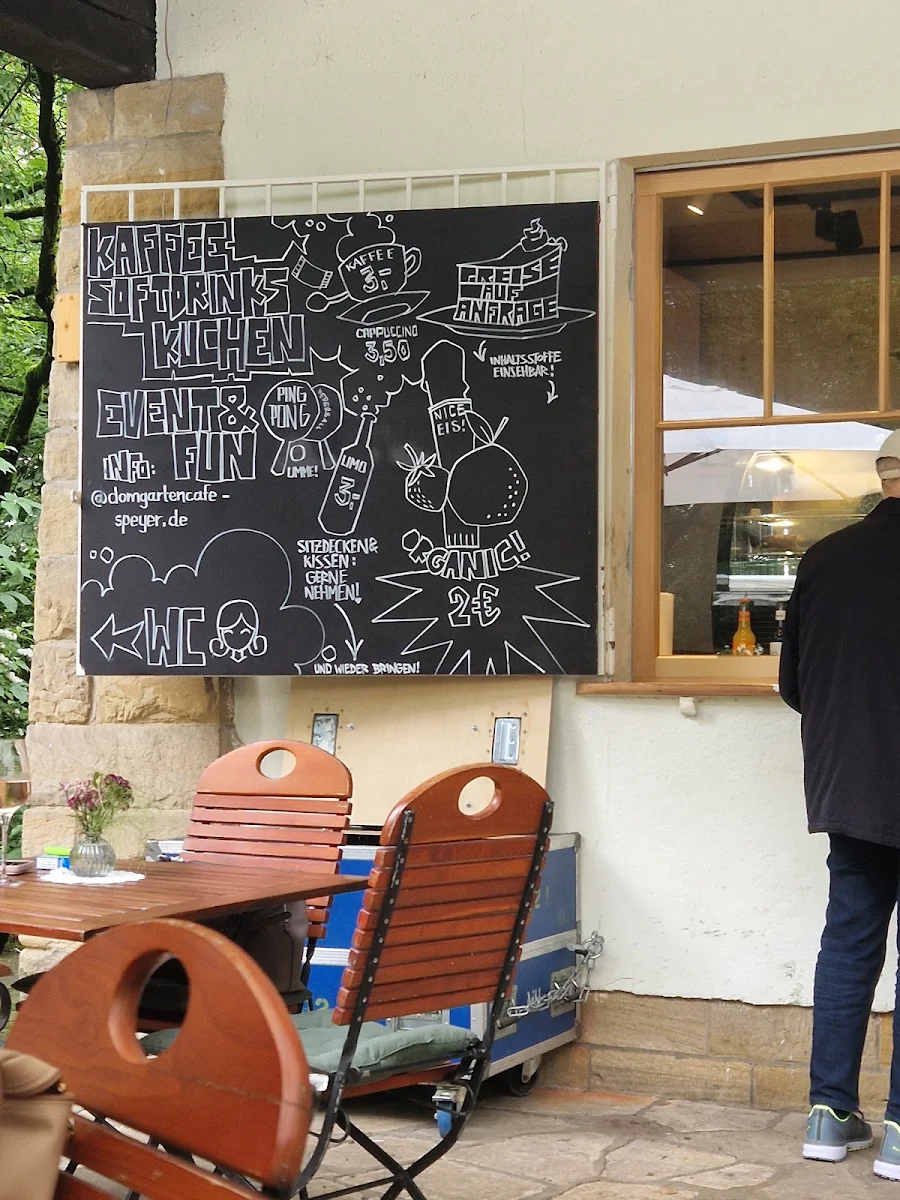 KAFFEE
SOFTDRINKS
KUCHEN
EVENT&
FUN
INFO:
@domgartencafe-
speyer.de
KAFFEE
3,-
CAPPUCCINO
3,50
PREISE
AUF
ANFRAGE
INHALTSSTOFFE
EINSEHBAR!
PING
PONG
UMME!
LIMO
3,-
NICE
EIS!
ORGANIC!
2€
SITZDECKEN&
KISSEN:
GERNE
NEHMEN!
UND WIEDER BRINGEN!
WC